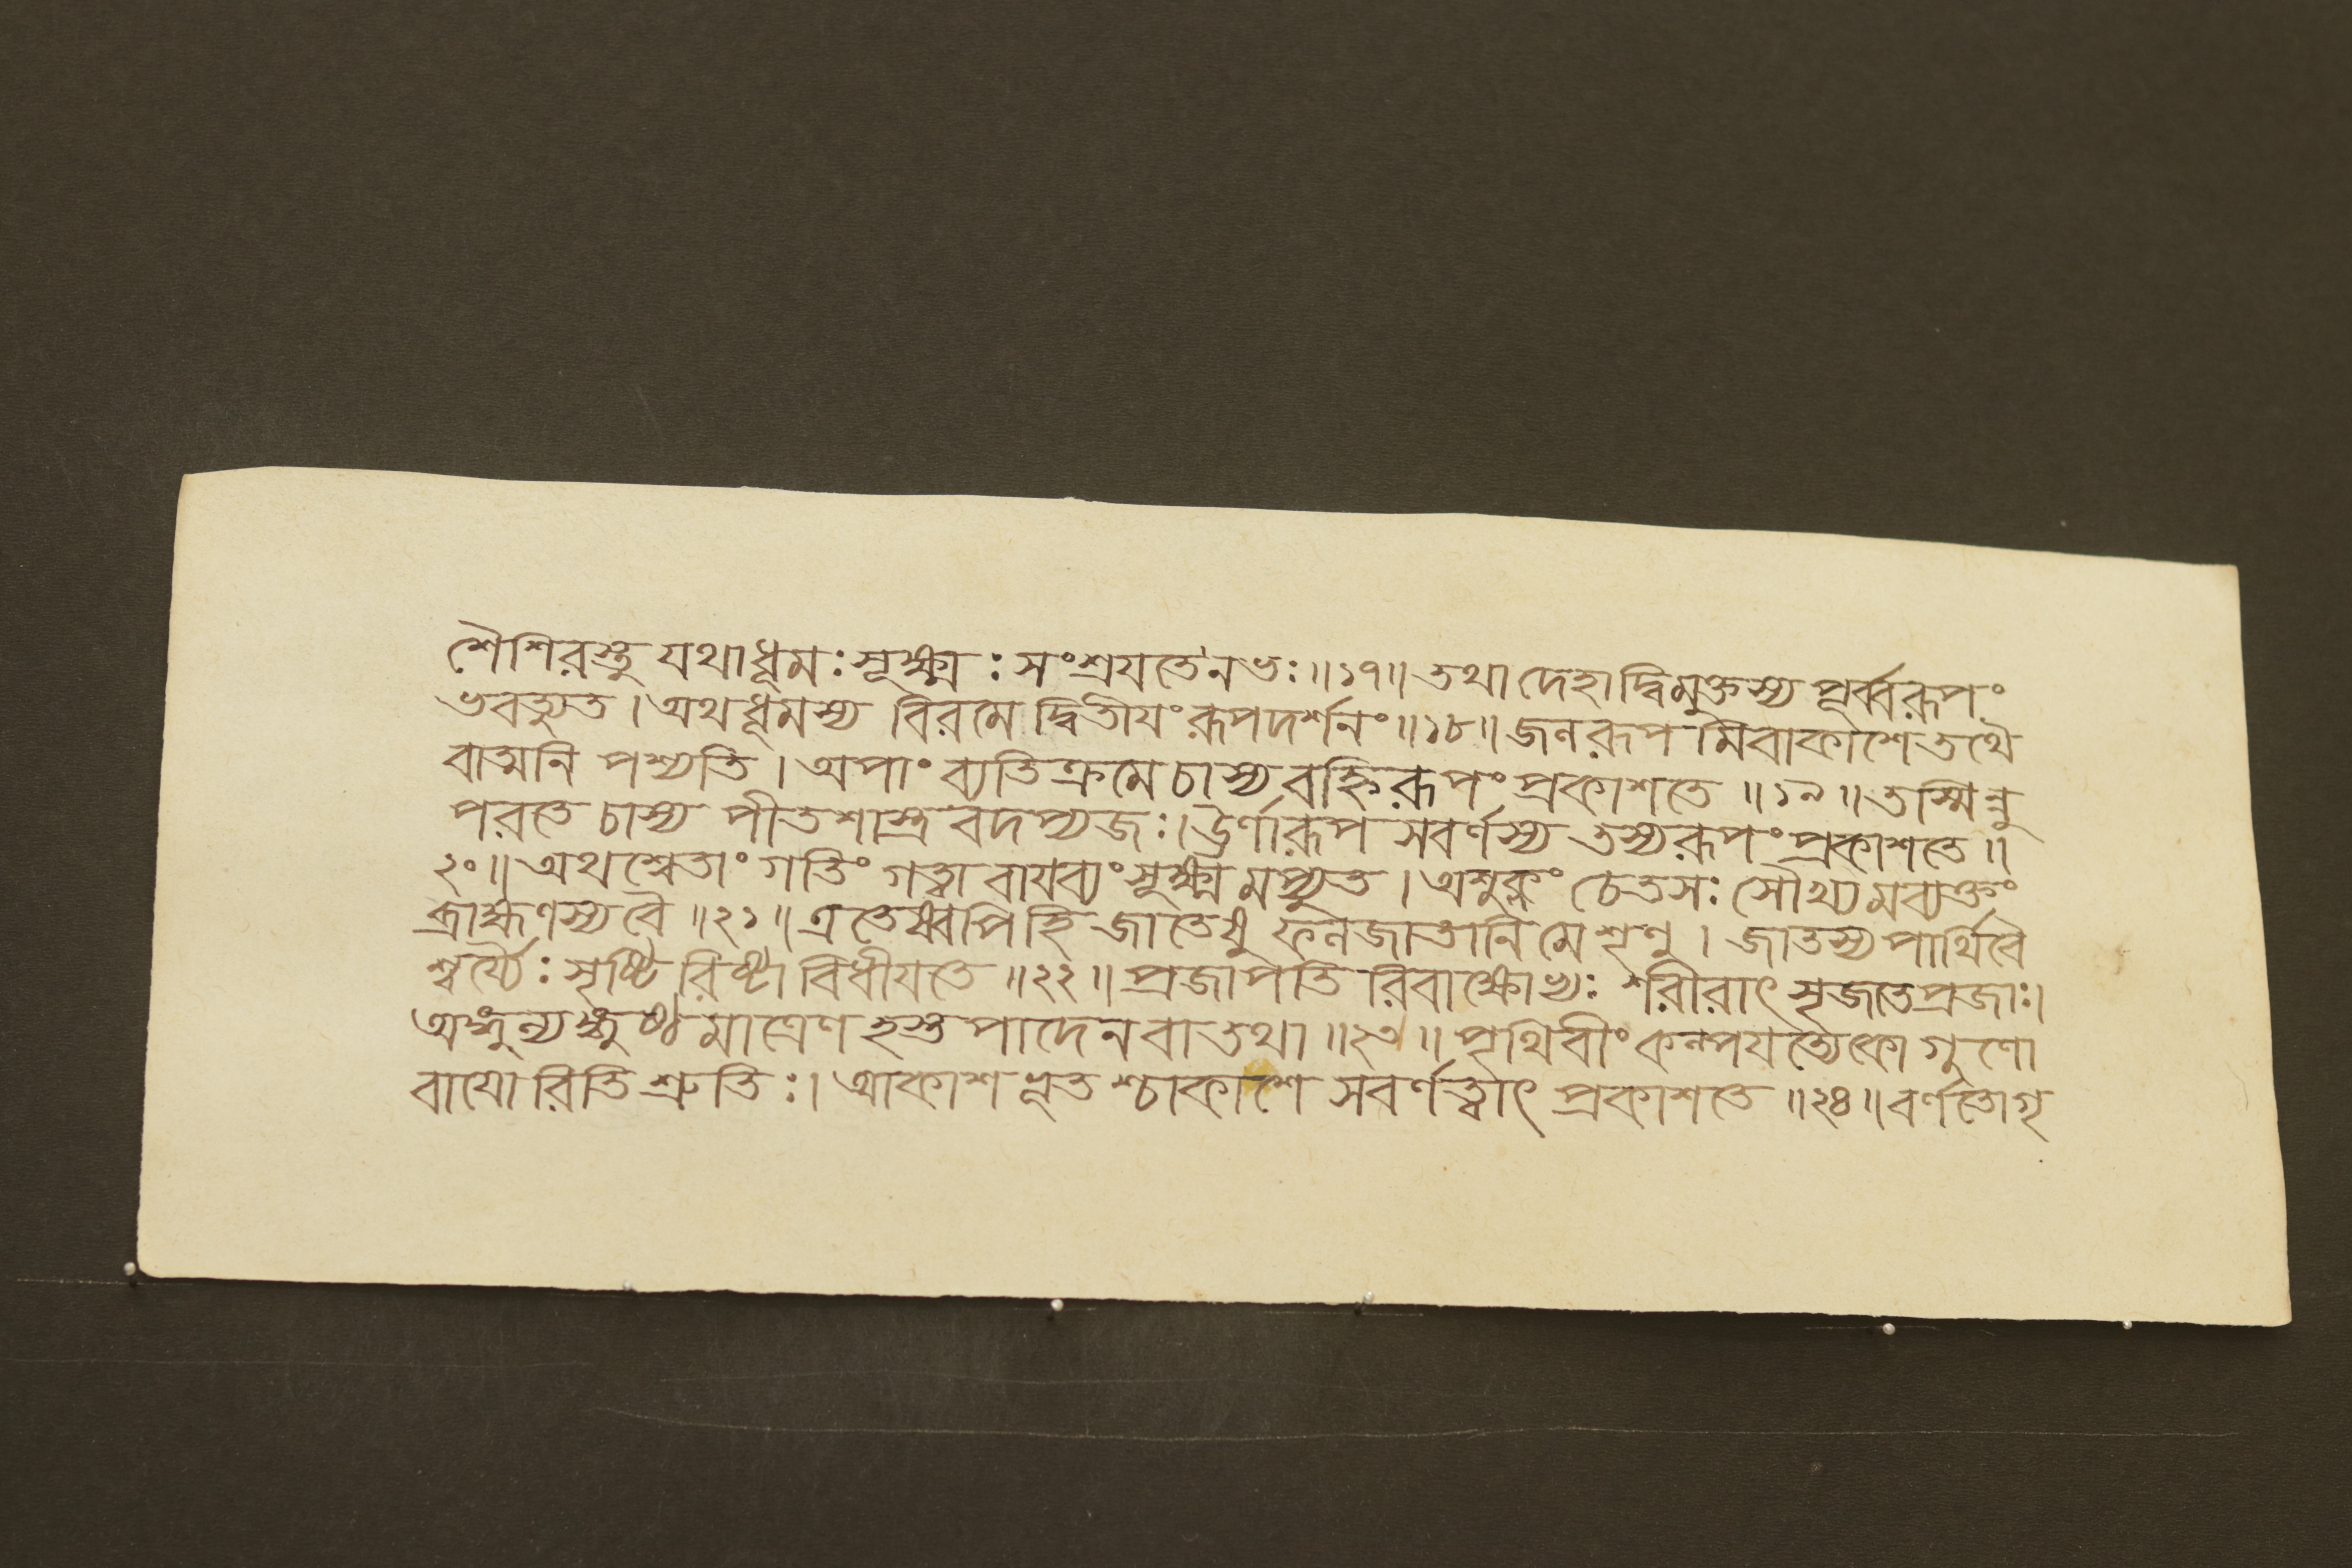 শৈশিরস্তু যথাধূমঃ সূক্ষ্মঃ সংশ্রযতেনভঃ॥১৭॥ তথা দেহাদ্বিমুক্তস্য পূর্ব্বরূপং
ভবত্যুত । অথধূমস্য বিরমে দ্বিতীযংরূপদর্শনং॥১৮॥ জলরূপ মিবাকাশেতথৈ
বাত্মনি পশ্যতি । অপাং ব্যতিক্রমেচাস্য বহ্নিরূপং প্রকাশতে ॥১৯॥ তস্মিন্নু
পরতে চাস্য পীতশাস্ত্র বদপ্যজঃ।ঊর্ণারূপ সবর্ণস্য তস্যরূপং প্রকাশতে ॥
২০॥ অথশ্বেতাং গতিং গত্বা বাযব্যংসূক্ষ্ম মপ্যুত । অশুক্লং চেতসঃ সৌখ্যমব্যক্তং
ব্রাহ্মণস্যবৈ ॥২১॥ এতেষ্বপি হি জাতেষু ফলজাতানি মেশৃণু । জাতস্যপার্থিবৈ
শ্বর্য্যৈঃ সৃষ্টি রিষ্টা বিধীযতে ॥২২॥ প্রজাপতি রিবাক্ষোভ্যঃ শরীরাৎ সৃজতেপ্রজাঃ।
অঙ্গুল্যঙ্গুষ্ঠমাত্রেণ হস্তপাদেনবাতথা॥২৩॥ পৃথিবীং কম্পযত্যেকো গুণো
বাযো রিতি শ্রুতিঃ। আকাশ ভূত শ্চাকাশে সবর্ণত্বাৎ প্রকাশতে ॥২৪॥ বর্ণতোগৃ